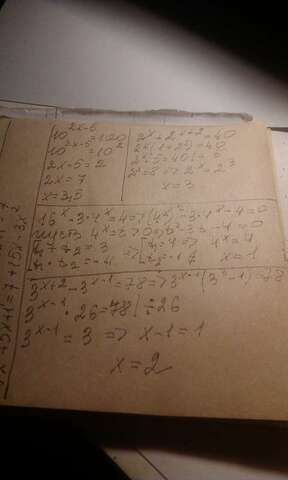 10^{2x-5}=100
10^{2x-5}=10^2
2x-5=2
2x=7
x=3,5
2^x+2^{x+2}=40
2^x(1+2^2)=40
2^x·5=40|÷5
2^x=8=>2^x=2^3
x=3
16^x-3·4^x=4=>(4^x)^2-3·4^x-4=0
4^x=t>0=>t^2-3t-4=0
=>4^x=4
x=1
3^{x+2}-3^{x-1}=78=>3^{x-1}(3^3-1)=78
3^{x-1}·26=78|÷26
3^{x-1}=3=>x-1=1
x=2